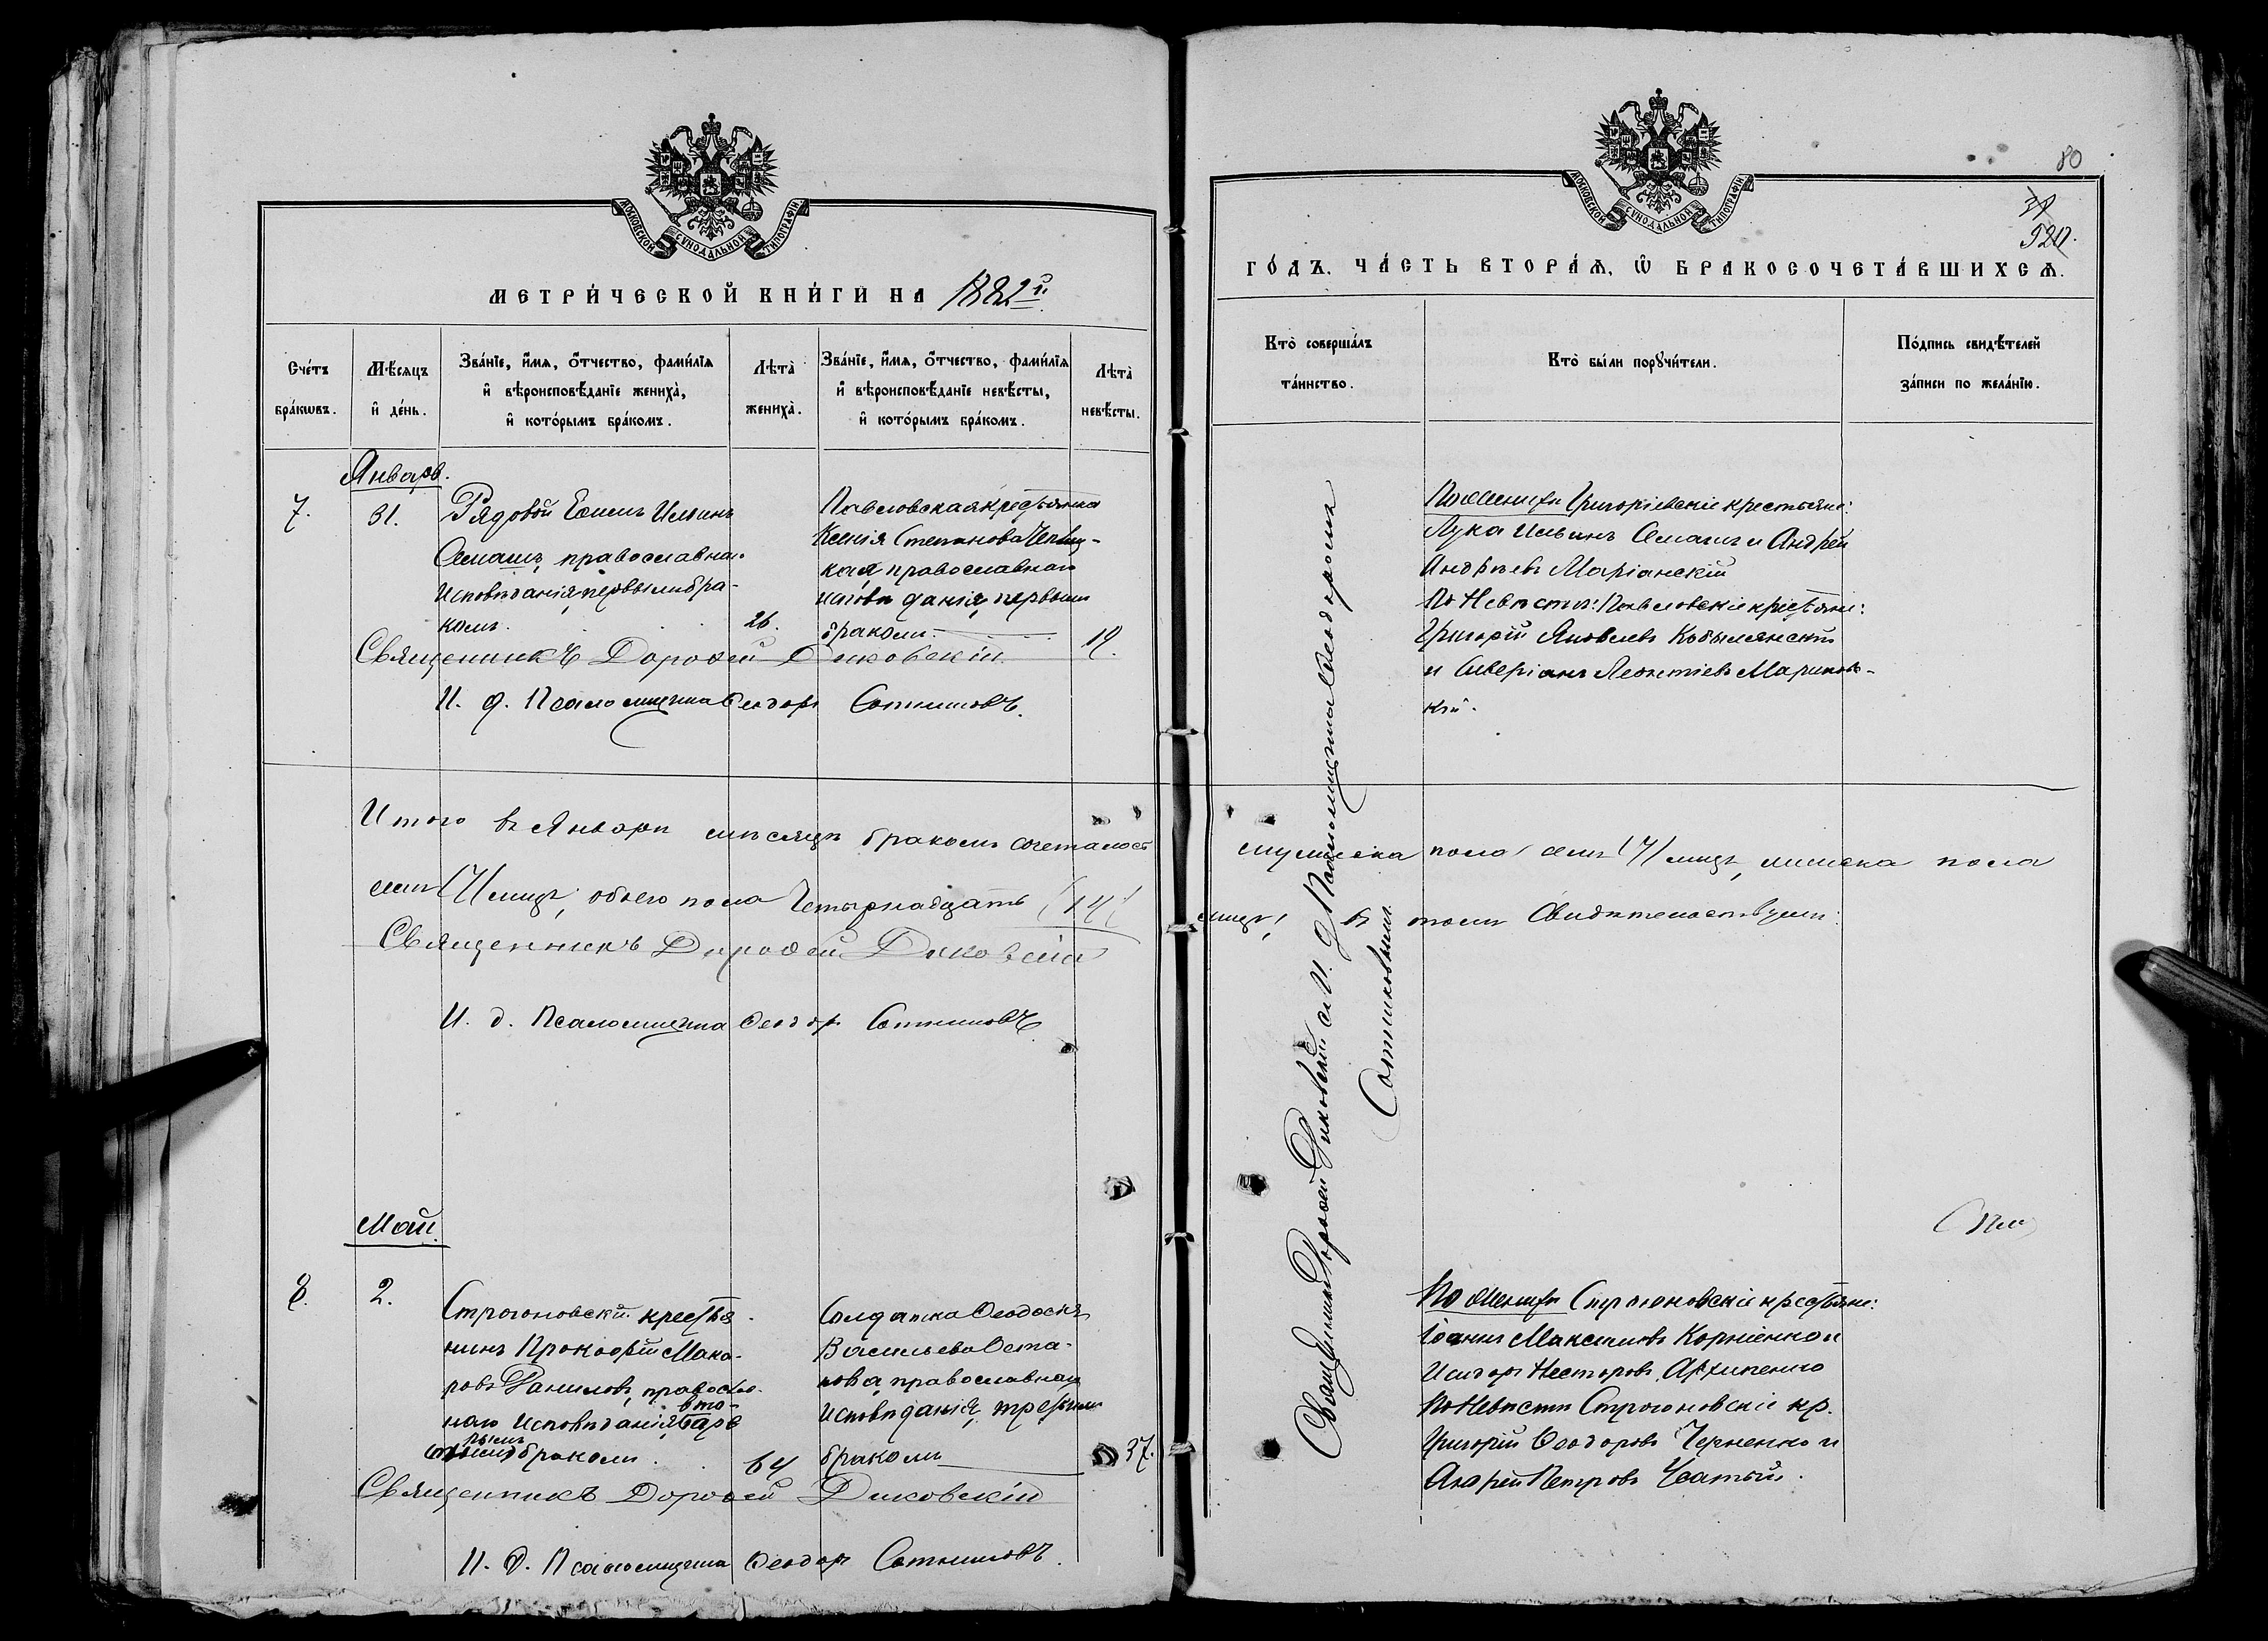 МОСКОВСКОЙ СѴНОДАЛЬНОЙ ТИПОГРАФІИ
МЕТРИ́ЧЕСКОЙ КНИ́ГИ НА 1882 й
Сче́тъ бра́кѡвъ.
Мѣ́сяцъ и҆ де́нь.
Зва́нїе, и҆́мѧ, ѻ҆́тчество, фами́лїѧ
и҆ вѣроисповѣ́данїе жениха̀,
и҆ кото́рымъ бра́комъ.
Лѣта̀ жениха̀.
Зва́нїе, и҆́мѧ, ѻ҆́тчество, фами́лїѧ
и҆ вѣроисповѣ́данїе невѣ́сты,
и҆ кото́рымъ бра́комъ.
Лѣта̀ невѣ́сты.
Январь.
7.
31.
Рядовой Ильинъ
православнаго
исповѣданія, первымъ бра-
комъ.
26.
Павловская крестьянка
Ксенія Степанова
кая, православнаго
исповѣданія, первымъ
бракомъ.
19.
Священникъ Дорофей Диковскій
И. д. Псаломщика Ѳеодоръ Сотниковъ.
Итого въ Январѣ мѣсяцѣ бракомъ сочеталось
семь (7) лицъ, обоего пола четырнадцать (14)
Священникъ Дорофей Диковскій
И. д. Псаломщика Ѳеодоръ Сотниковъ
Май.
8.
2.
Строгоновскій крестья-
нинъ Прокофій Мака-
ровъ Даниловъ, правосла-
вто-
наго исповѣданія,
рымъ
бракомъ.
64
Солдатка Ѳеодосія
Васильева Оста-
пова, православнаго
исповѣданія, третьимъ
бракомъ
37.
Священникъ Дорофей Диковскій
И. д. Псаломщика Ѳеодоръ Сотниковъ.
МОСКОВСКОЙ СѴНОДАЛЬНОЙ ТИПОГРАФІИ
80
520.
ГО́ДЪ. ЧА́СТЬ ВТОРА́Ѧ, Ѡ҆ БРАКОСОЧЕТА́ВШИХСѦ.
Кто̀ соверша́лъ
та́инство.
Кто̀ бы́ли порꙋчи́тели.
По́дпись свидѣ́телей
за́писи по жела́нїю.
По женихѣ Григоріевскіе крестьяне:
Лука Ильинъ и Андрей
Андреевъ Маріанскій
По Невѣстѣ: Павловскіе крестьяне:
Григорій Яковлевъ Кобылянскій
и Северіанъ Леонтіевъ Марковс-
кій.
Священникъ Дорофей Диковскій и И. д. Псаломщика Ѳеодоръ
Сотниковымъ
мужеска пола семь (7) лицъ, женска пола
лицъ, въ томъ свидѣтельствуемъ:
По женихѣ Строгоновскіе крестьяне:
Іоаннъ Максимовъ Корніенко и
Исидоръ Несторовъ Архипенко
По Невѣстѣ Строгоновскіе кр.
Григорій Ѳеодоровъ Черненко и
Андрей Петровъ Чсатый.